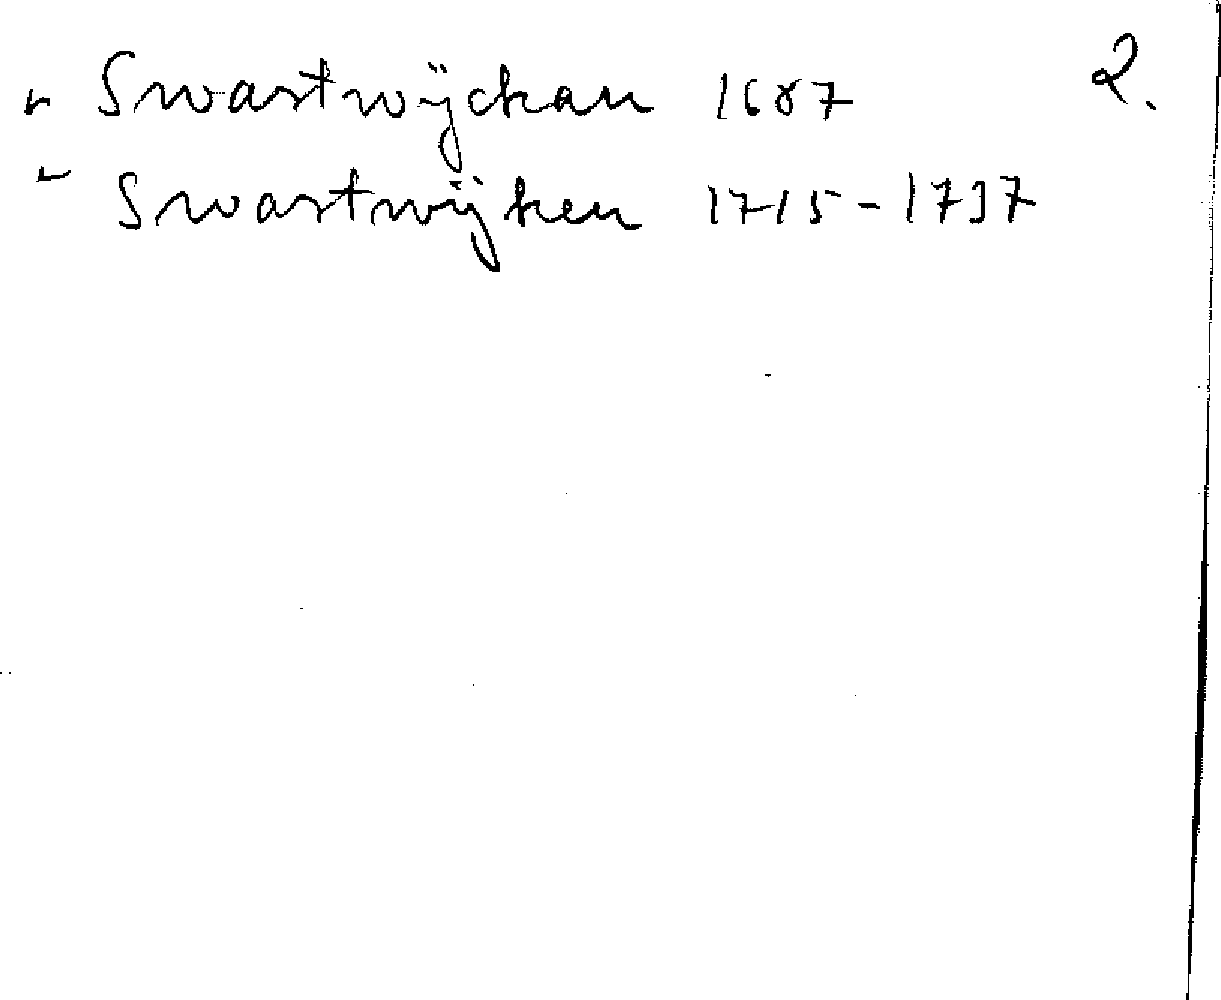 " Swartwÿckan 1687 2.
" Swartwÿken 1715-1737